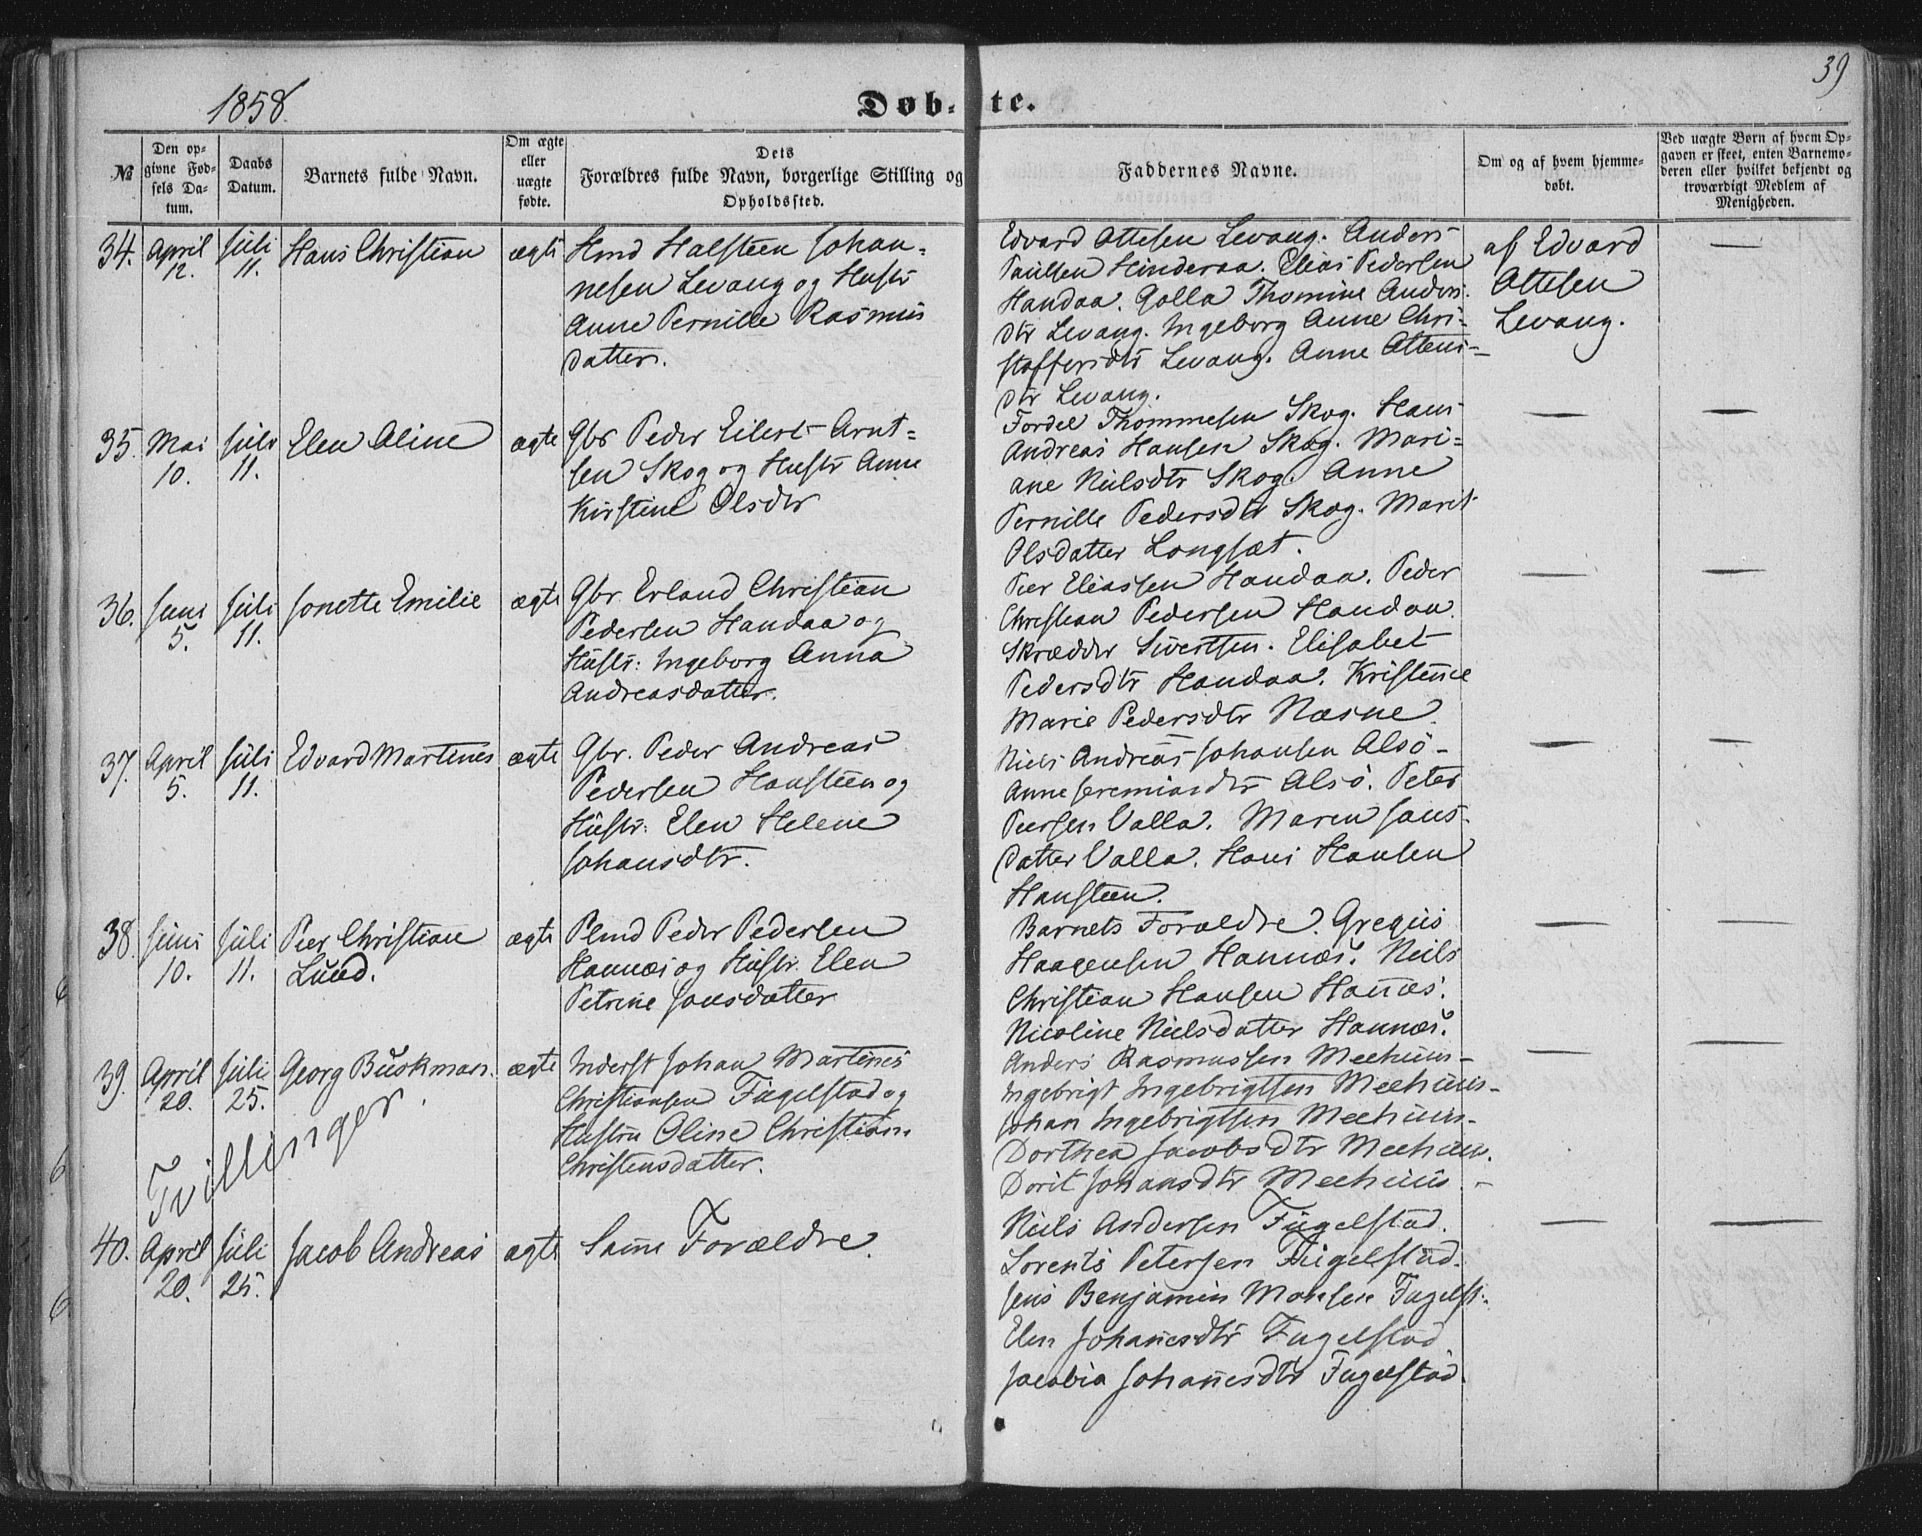 39
1858.
Døb-te.
№
Den opgivne Fødsels Datum.
Daabs Datum.
Barnets fulde Navn.
Om ægte eller uægte fødte.
Dets Forældres fulde Navn, borgerlige Stilling og Opholdssted.
Faddernes Navne.
Om og af hvem hjemmedøbt.
Ved uægte Børn af hvem Opgaven er skeet, enten Barnemoderen eller hvilket bekjendt og troværdigt Medlem af Menigheden.
34. April 12. Juli 11. Hans Christian ægte
Hmd Halsteen Johan-
nesen Levang og Hustr
Anne Pernille Rasmus
datter.
Edvard Ottesen Levang. Anders
Paulsen Hinderaa. Elias Pedersen
Handaa. Golla Thomine Anders
dtr Levang. Ingeborg Anne Chri-
stoffersdtr Levang. Anne Ottens-
dtr Levang.
af Edvard
Ottesen
Levang.
—
35. Mai 10. Juli 11. Elen Aline ægte
Gbr Peder Eilert Arnt-
sen Skog og Hustr Anne
Kirstine Olsdtr
Fordel Thommesen Skog. Hans
Andreas Hansen Skog. Mari-
ane Nielsdtr Skog. Anne
Pernille Pedersdtr Skog. Marit
Olsdatter Longsæt.
— —
36. Juni 5. Juli 11. Jonette Emilie ægte
Gbr. Erland Christian
Pedersen Handaa og
Hustr: Ingeborg Anna
Andreasdatter.
Peer Eliassen Handaa. Peder
Christian Pedersen Handaa.
Skrædder Sivertsen. Elisabet
Pedersdtr Handaa. Kristence
Marie Pedersdtr Næsne.
— —
37. April 5. Juli 11. Edvard Martines ægte
Gbr. Peder Andreas
Pedersen Hansteen og
Hustr: Elen Helene
Johansdtr.
Niels Andreas Johansen Alsø-
Anne Jeremiasdtr Alsø. Peter
Peersen Valla. Maren Jans-
datter Valla. Hans Hansen
Hansteen.
— —
38. Juni 10. Juli 11. Peer Christian
Lund. ægte
Plmd Peder Pedersen
Hannæs og Hustr. Elen
Petrine Jonsdatter
Barnets Forældre. Gregus
Haagensen Hannæs. Niels
Christian Hansen Hañæs.
Nicoline Nielsdatter Hannæs.
— —
39. April 20. Juli 25. Georg Buskman. ægte
Inderst Johan Martines
Christiansen Fugelstad og
Hustru Oline Christian.
Christensdatter.
Anders Rasmussen Meehuus-
Ingebrigt Ingebrigtsen Meehuus-
Johan Ingebrigtsen Meehuus-
Dorthea Jacobsdtr Meehuus.
Dorit Johansdtr Meehuus.-
— —
Tvillinger.
40. April 20. Juli 25. Jacob Andreas ægte
Same Forældre.
Niels Andersen Fugelstad.
Lorents Petersen Fugelstad.
Jens Benjamin Monsen Fugelst.
Elen Johañesdtr Fugelstad
Jacobia Johañesdtr Fugelstad.
— —